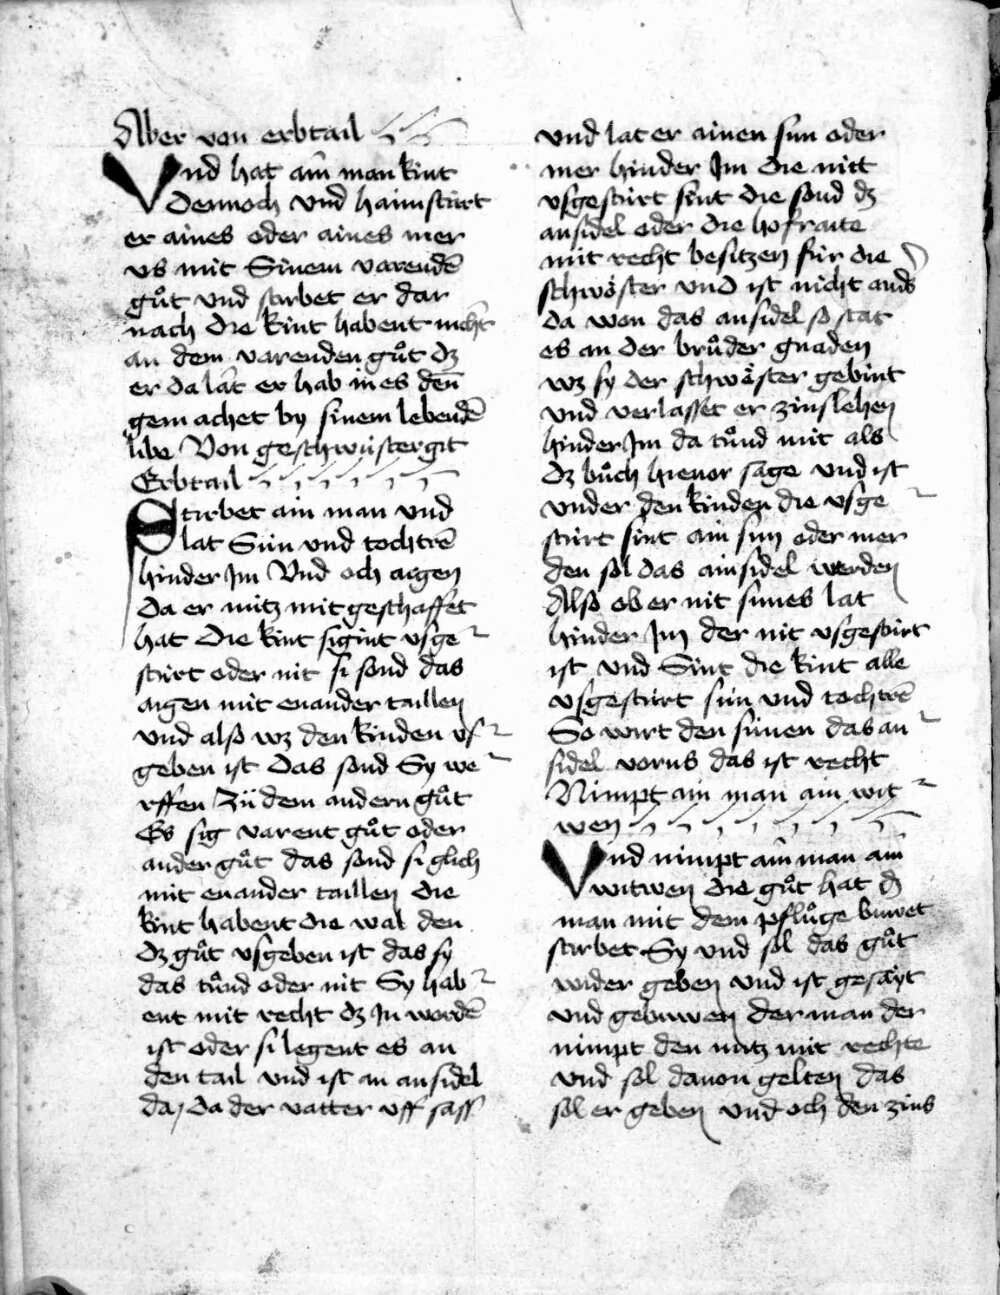 Aber von erbtail
Vnd hat ain man kint
Dennoch vnd haimstúrt
er aines oder aines mer
vs mit Sinem varendē
gůt vnd starbet er dar
nach die kint habent nicht
an dem varenden gůt dz
er da lát er hab in es deñ
gemachet by sinem lebendē
libe Von geschwústergit
Erbtail
Stirbet ain man vnd
lat Sún vnd tochtrē
hinder Im Vnd och aigen
da er nútz mit geschaffet
hat die kint sigint vsge
stúrt oder nit si sond das
aigen mit enander taillen
vnd also wz den kinden vs
geben ist das sond Sy we
rffen Zů dem andern gůt
Es sig varent gůt oder
ander gůt das sond si glich
mit enander taillen die
kint habent die wal den
dz gůt vsgeben ist das sy
das tůnd oder nit Sy hab
ent mit recht dz In wordē
ist oder si legent es an
den tail vnd ist an ansidel
da, da der vatter vff sass
vnd lat er ainen sun oder
mer hinder Im die nitt
vsgestúrt sint die sond dz
ansidel oder die hofraite
mit recht besitzen fúr die
schwöster vnd ist nicht anders
da won das ansidel so stat
es an der brůder gnaden
wz sy der schwöster gebint
vnd verlasset er zinslehen
hinder Im da tůnd mit als
dz bůch hieuor sage vnd ist
vnder den kinden die vsge
stúrt sint ain sun oder mer
den sol das ainsidel werden
Also ob er nit sunes lat
hinder Im der nit vsgestúrt
ist vnd Sint die kint alle
vsgestúrt sún vnd tochtrē
So wirt den súnen das an
sidel vorus das ist recht
Nimpt ain man ain wit
wen
Vnd nimpt ain man ain
witwen die gůt hat dz
man mit dem pflůge buwet
starbet Sy vnd sol das gůt
wider geben vnd ist gesäyt
vnd gebuwen der man der
nimpt den nútz mit rechte
vnd sol dauon gelten das
sol er geben vnd och den zins